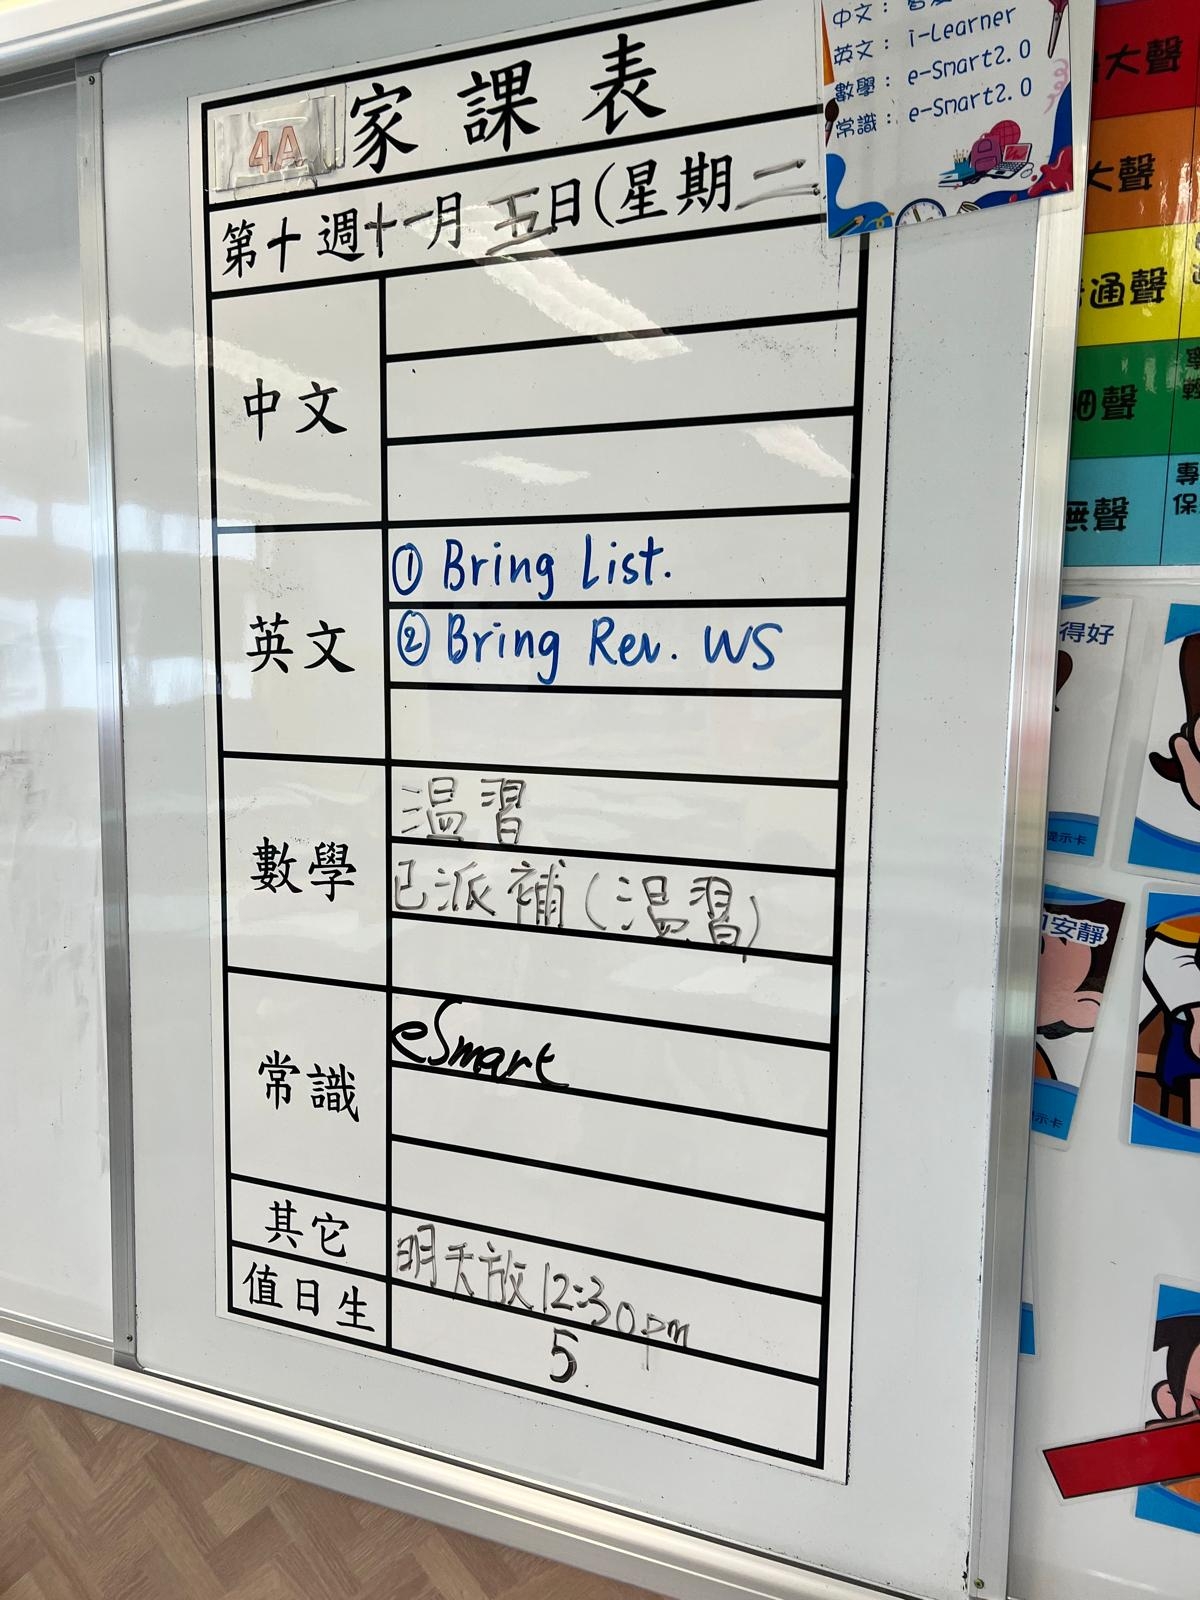 4A 家課表
第十週十一月五日(星期二
中文
英文
① Bring List.
② Bring Rev. WS
數學
温習
已派補(温習)
常識
eSmart
其它
明天放12:30pm
值日生
5
中文：
英文： i-Learner
數學： e-Smart2.0
常識： e-Smart2.0
大聲
大聲
通聲
細聲
無聲
專
保
得好
提示卡
安靜
示卡